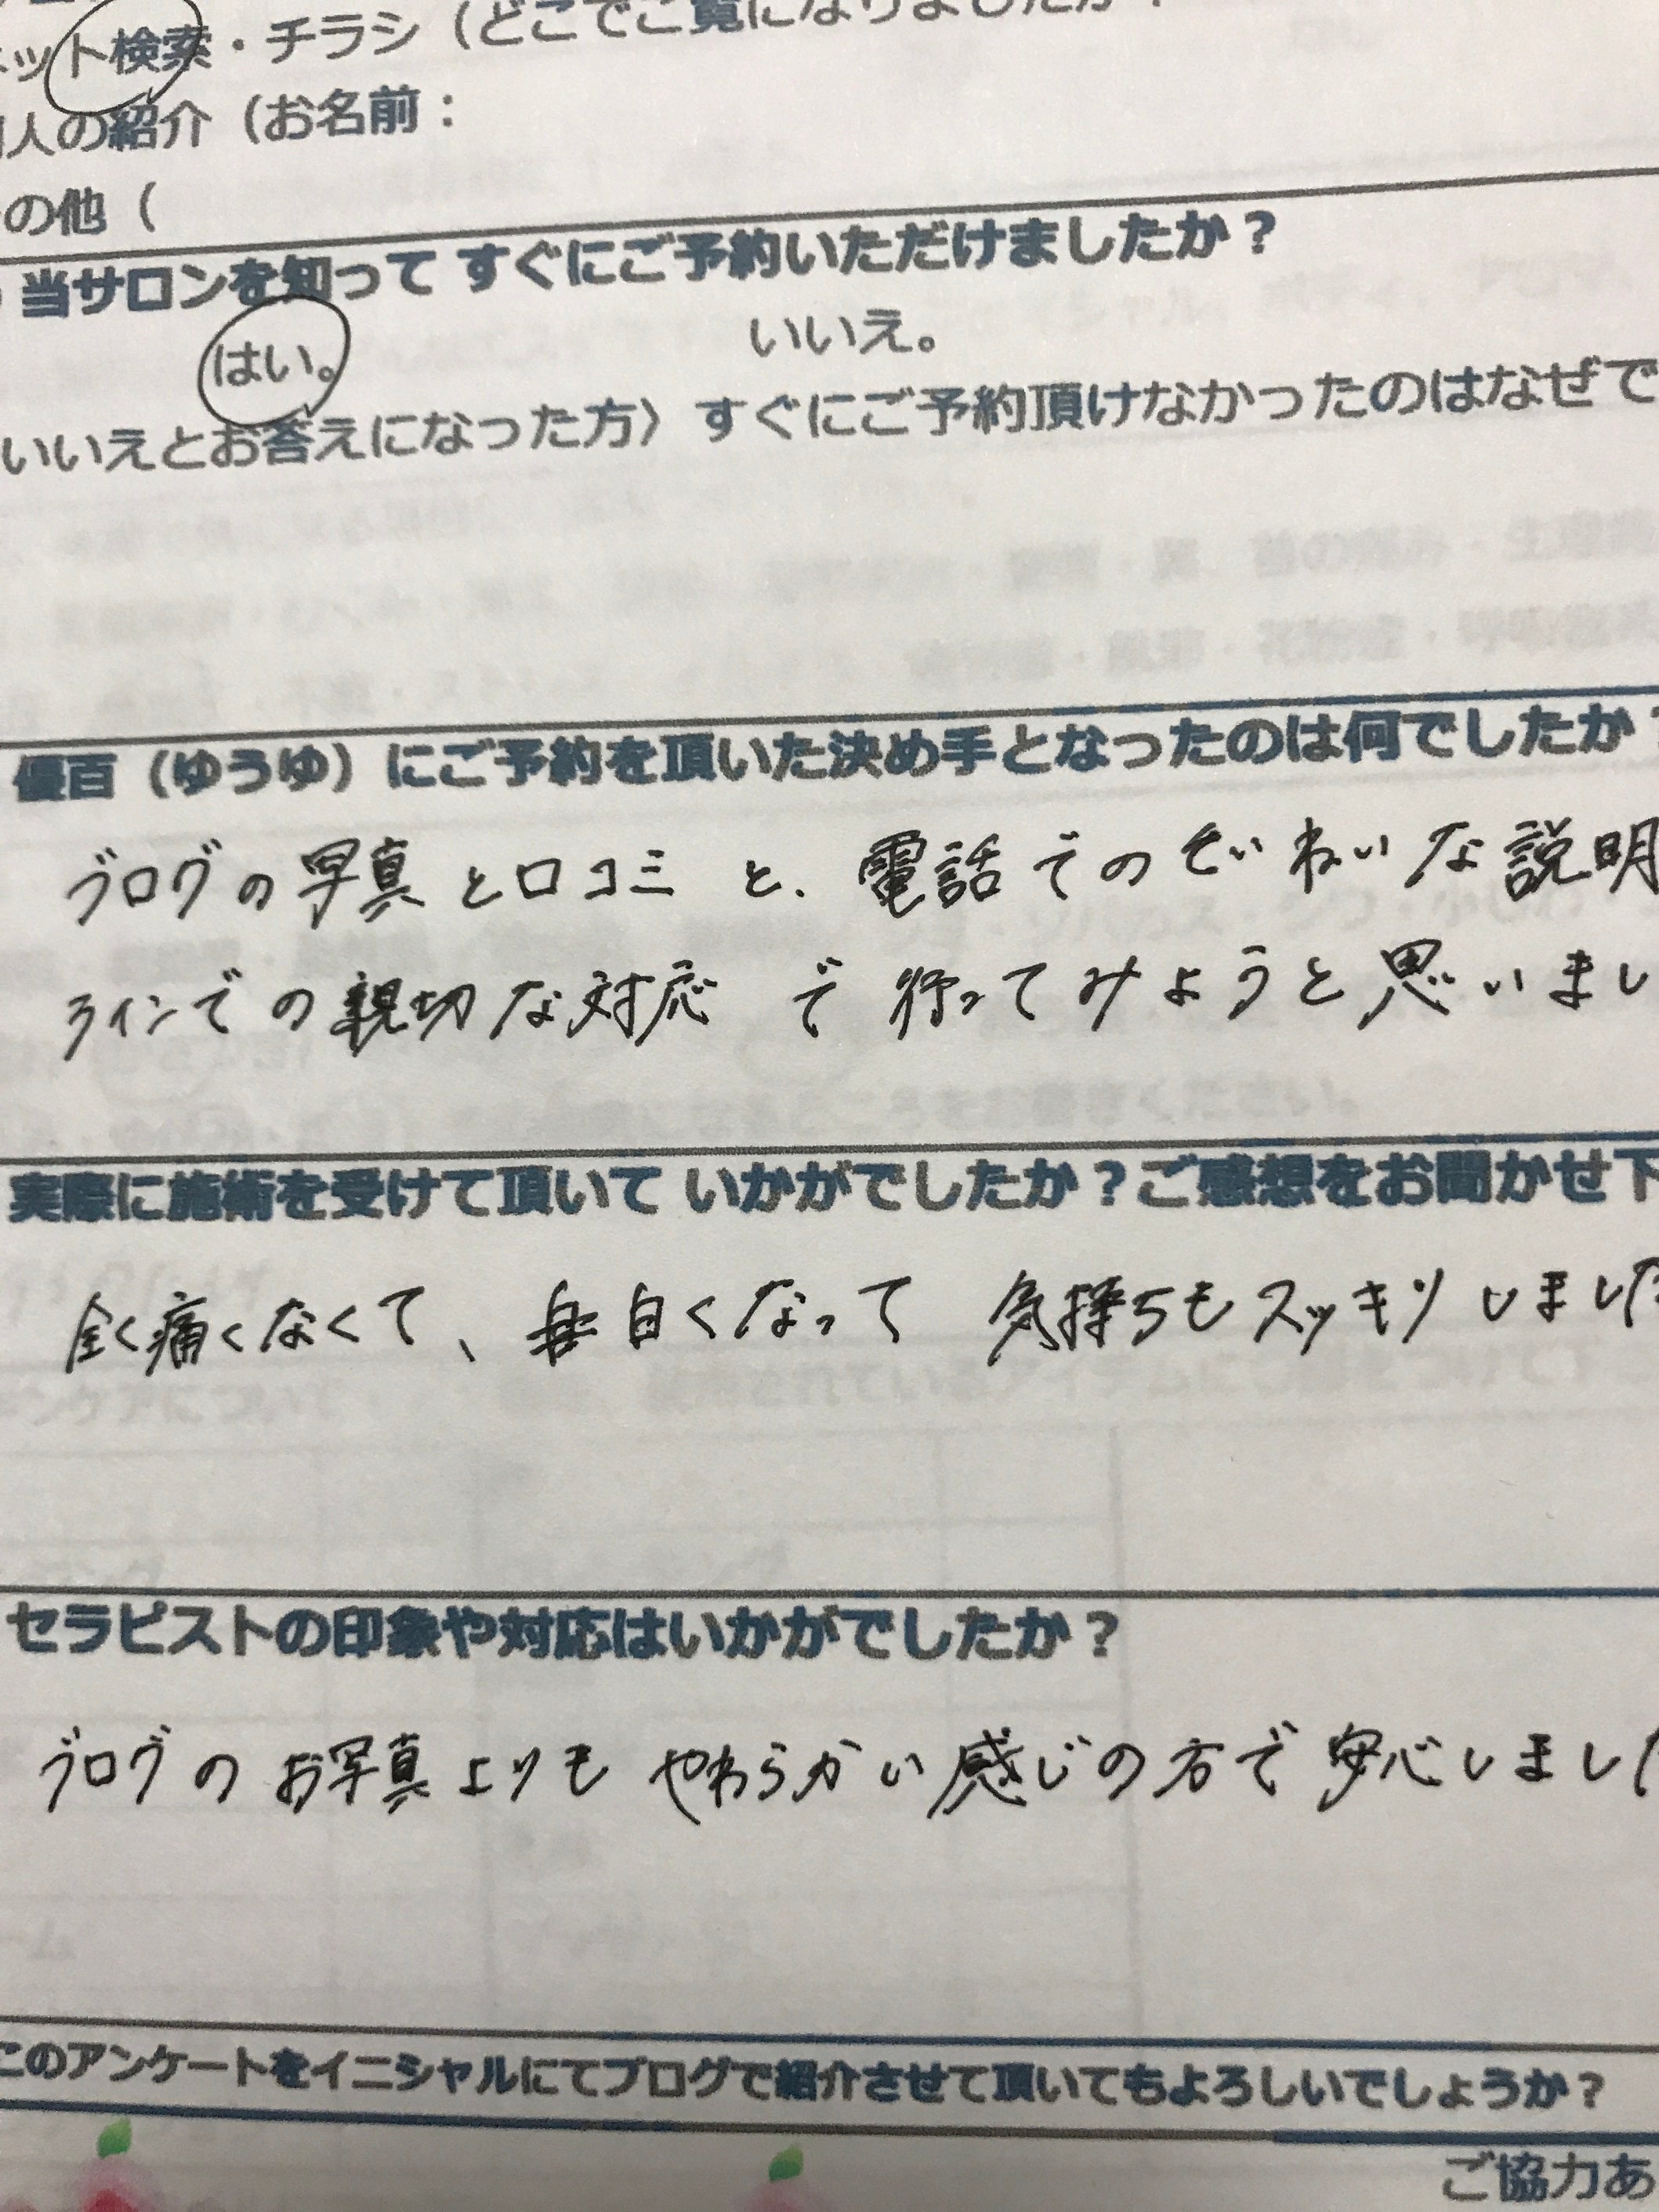 ット検索・チラシ（どこでご覧になりましたか？
人の紹介（お名前：
の他（
当サロンを知って すぐにご予約いただけましたか？
はい。 いいえ。
いいえとお答えになった方〉すぐにご予約頂けなかったのはなぜで
優百（ゆうゆ）にご予約を頂いた決め手となったのは何でしたか？
ブログの写真と口コミと、電話でのていねいな説明
ラインでの親切な対応で行ってみようと思いまし
実際に施術を受けて頂いて いかがでしたか？ご感想をお聞かせ下
全く痛くなくて、白くなって 気持ちもスッキリしました
セラピストの印象や対応はいかがでしたか？
ブログのお写真よりもやわらかい感じの方で安心しました
このアンケートをイニシャルにてブログで紹介させて頂いてもよろしいでしょうか？
ご協力あ